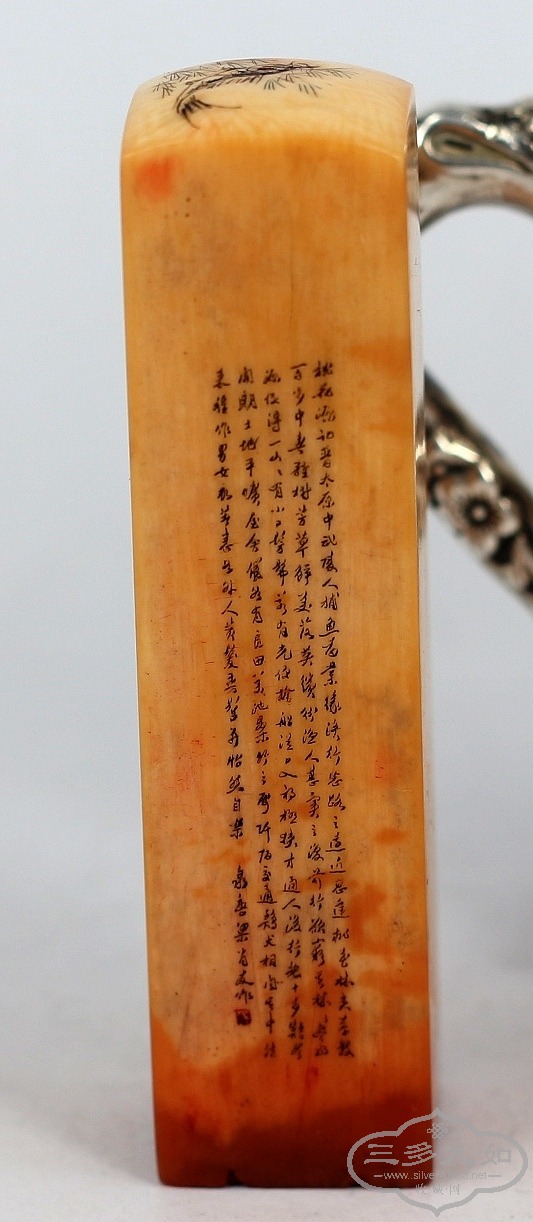 桃花源記晉太原中武陵人捕魚為業緣溪行忘路之遠近忽逢桃花林夾岸數
百步中無雜樹芳草鮮美落英繽紛漁人甚異之復前行欲窮其林〻盡水
源便得一山〻有小口髣髴若有光便捨船從口入初極狹才通人復行數十步豁然
開朗土地平曠屋舍儼然有良田美池桑竹之屬阡陌交通雞犬相聞其中往
來種作男女衣著悉如外人黃髮垂髫並怡然自樂 泉唐梁肖友作
三多 如
www.silver
收藏网